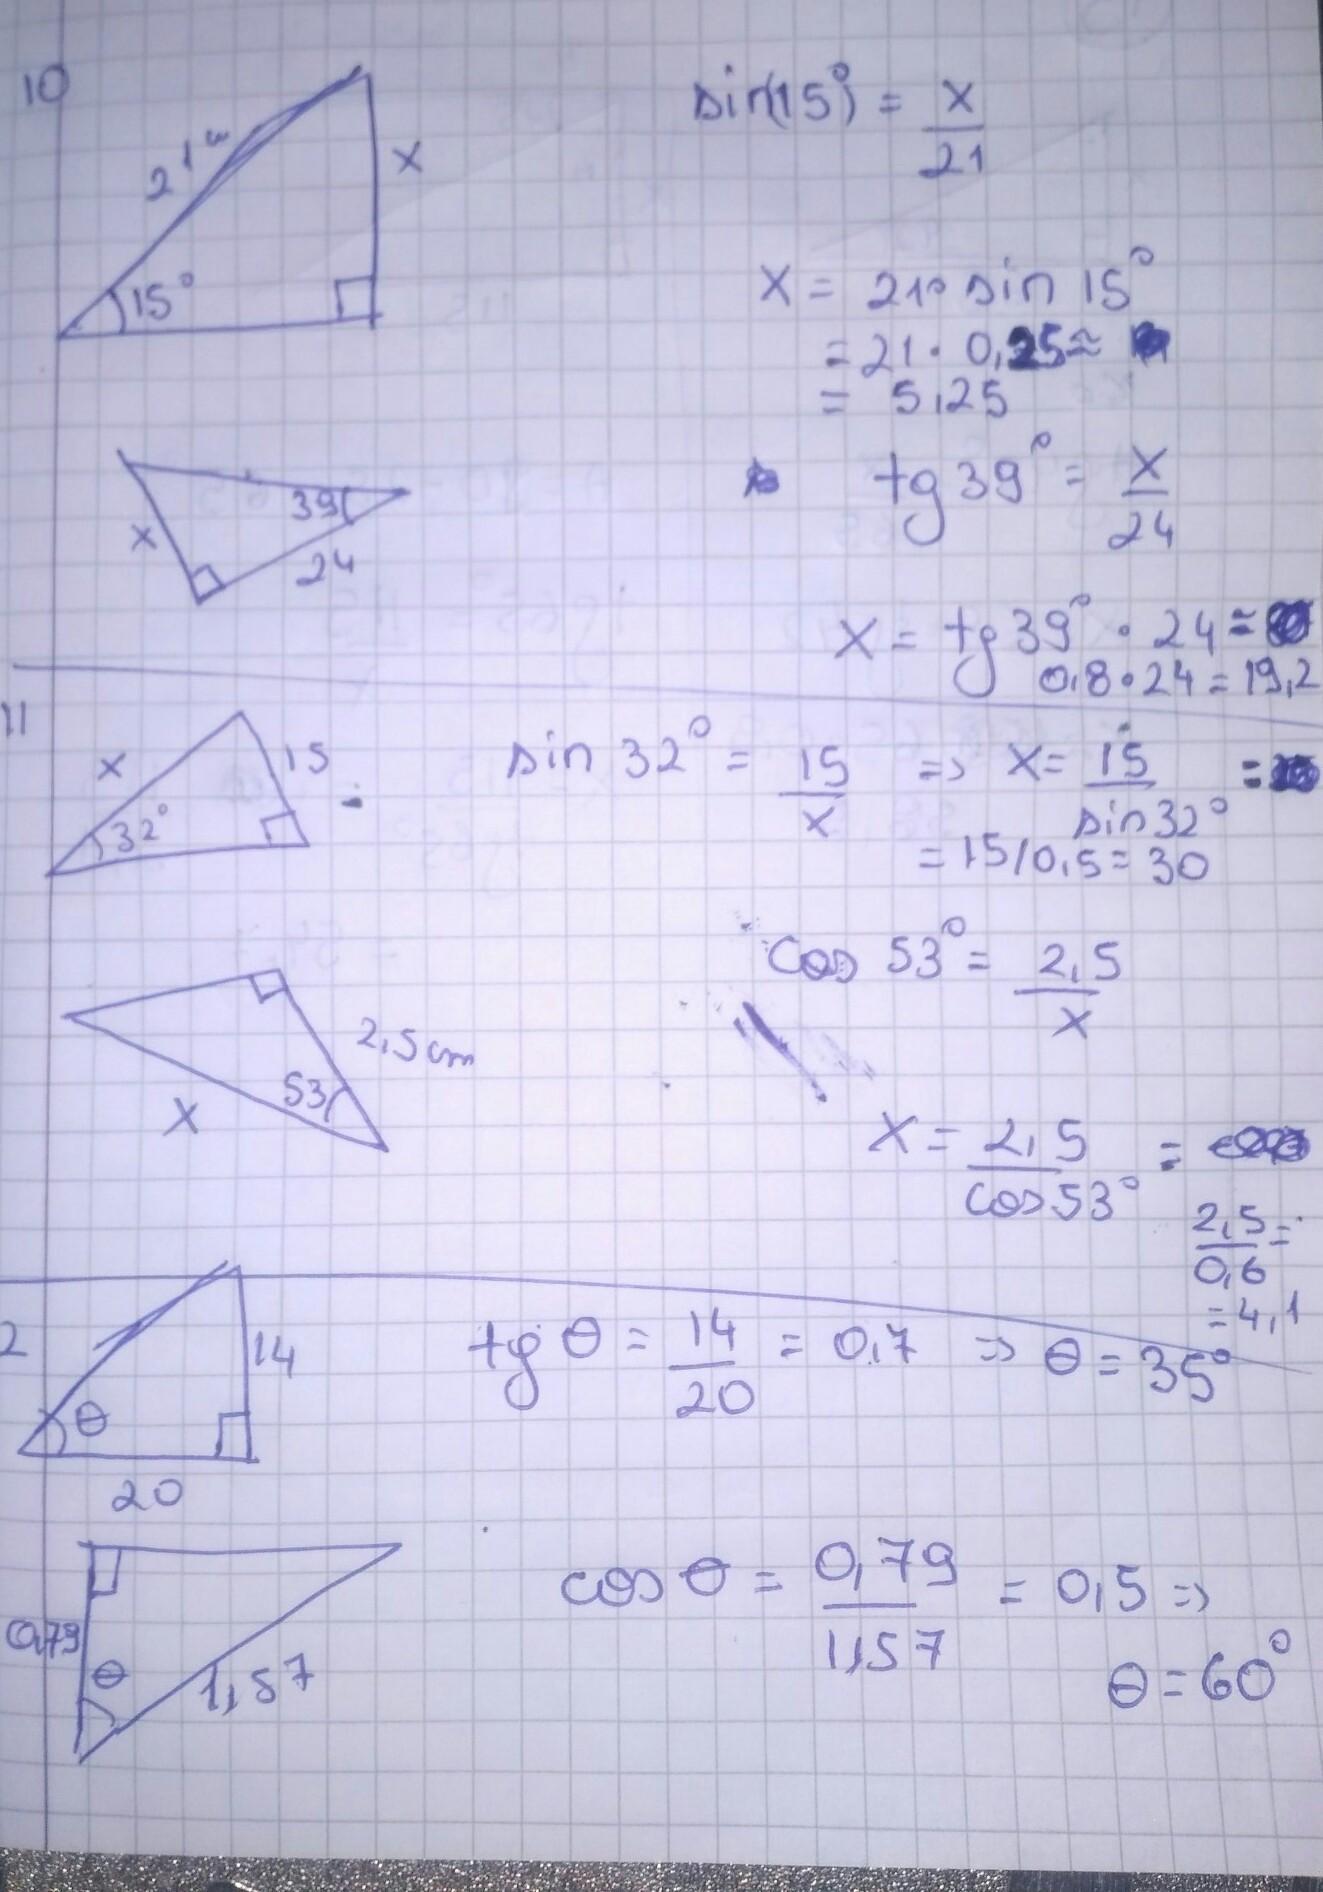 10
21
x
15°
sin(15°) = x/21
x = 21· sin 15°
= 21 · 0,25 ≈
= 5,25
39
x
24
tg 39° = x/24
x = tg 39° · 24 =
0,8 · 24 = 19,2
11
x
15
32°
sin 32° = 15/x => x = 15/sin 32° =
= 15/0,5 = 30
2,5 cm
53
x
cos 53° = 2,5/x
x = 2,5/cos 53° =
2,5/0,6 =
= 4,1
2
14
θ
20
tg θ = 14/20 = 0,7 => θ = 35°
0,79
θ
1,57
cos θ = 0,79/1,57 = 0,5 =>
θ = 60°